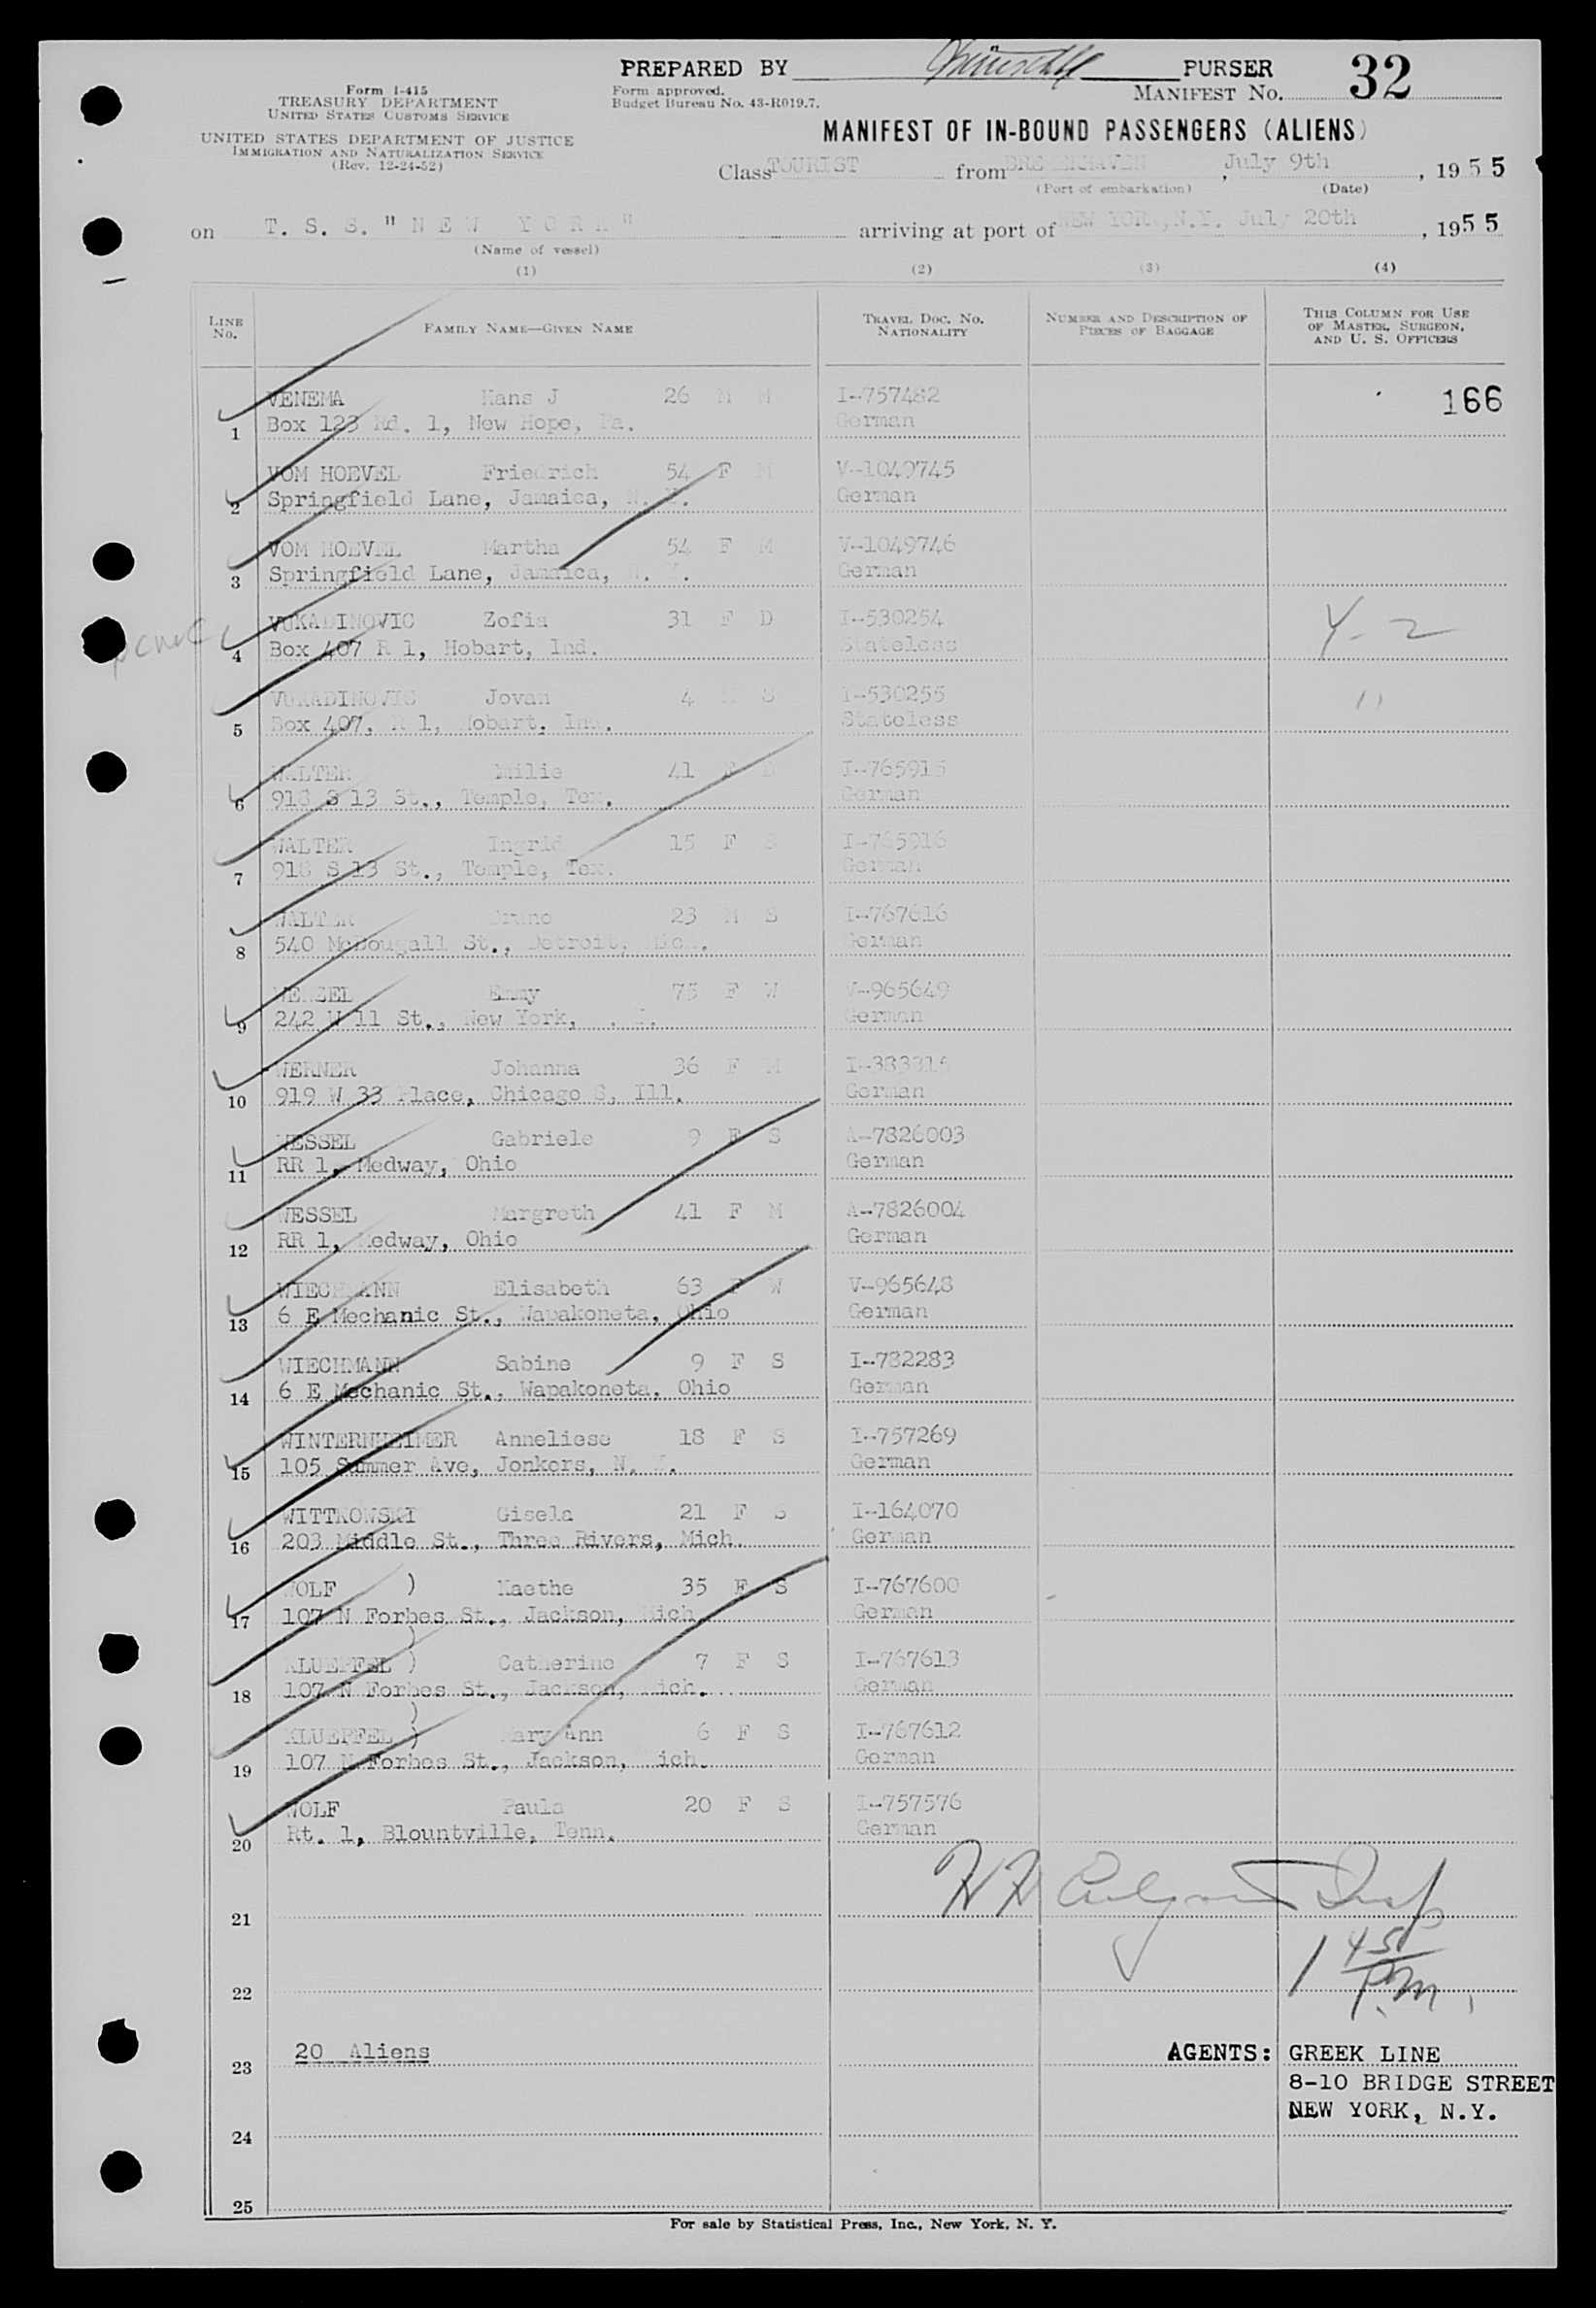 PREPARED BY PURSER
Form 1-415
TREASURY DEPARTMENT
UNITED STATES CUSTOMS SERVICE
UNITED STATES DEPARTMENT OF JUSTICE
IMMIGRATION AND NATURALIZATION SERVICE
(Rev. 12-24-52)
Form approved.
Budget Bureau No. 43-R019.7.
MANIFEST No. 32
MANIFEST OF IN-BOUND PASSENGERS (ALIENS)
Class TOURIST from BREMENHAVEN, July 9th, 1955
(Port of embarkation) (Date)
on T. S. S. "NEW YORK" arriving at port of NEW YORK, N.Y. July 20th, 1955
(Name of vessel)
(1) (2) (3) (4)
LINE No. FAMILY NAME—GIVEN NAME TRAVEL DOC. No. NATIONALITY NUMBER AND DESCRIPTION OF PIECES OF BAGGAGE THIS COLUMN FOR USE OF MASTER, SURGEON, AND U. S. OFFICERS
VENEMA Hans J 26 M M I-757482 166
1 Box 123 Rd. 1, New Hope, Pa. German
VOM HOEVEL Friedrich 54 F M V-1049745
2 Springfield Lane, Jamaica, N. Y. German
VOM HOEVEL Martha 54 F M V-1049746
3 Springfield Lane, Jamaica, N. Y. German
VUKADINOVIC Zofia 31 F D I-530254 Y-2
4 Box 407 R 1, Hobart, Ind. Stateless
VUKADINOVIC Jovan 4 S I-530255 "
5 Box 407, R 1, Hobart, Ind. Stateless
WALTER 41 F I-765915
6 918 S 13 St., Temple, Tex. German
WALTER Ingrid 15 F S I-765916
7 918 S 13 St., Temple, Tex. German
WALTER Bruno 23 M S I-767616
8 540 McDougall St., Detroit, Mich. German
WENZEL Emmy 75 F W V-965649
9 242 W 11 St., New York, German
WERNER Johanna 36 F M I-383315
10 919 W 33 Place, Chicago 8, Ill. German
WESSEL Gabriele 9 F S A-7826003
11 RR 1, Medway, Ohio German
WESSEL Margreth 41 F M A-7826004
12 RR 1, Medway, Ohio German
WIECHMANN Elisabeth 63 F W V-965648
13 6 E Mechanic St., Wapakoneta, Ohio German
WIECHMANN Sabine 9 F S I-782283
14 6 E Mechanic St., Wapakoneta, Ohio German
WINTERNHEIMER Anneliese 18 F S I-757269
15 105 Summer Ave, Jonkers, N. Y. German
WITTKOWSKI Gisela 21 F S I-164070
16 203 Middle St., Three Rivers, Mich. German
WOLF ) Kaethe 35 F S I-767600
17 107 N Forbes St., Jackson, Mich. German
KLUEPFEL ) Catherine 7 F S I-767613
18 107 N Forbes St., Jackson, Mich. German
KLUEPFEL ) Mary Ann 6 F S I-767612
19 107 N Forbes St., Jackson, Mich. German
WOLF Paula 20 F S I-757576
20 Rt. 1, Blountville, Tenn. German
21
1 45 P.M.
22
23 20 Aliens AGENTS: GREEK LINE
8-10 BRIDGE STREET
NEW YORK, N.Y.
24
25
For sale by Statistical Press, Inc., New York, N. Y.